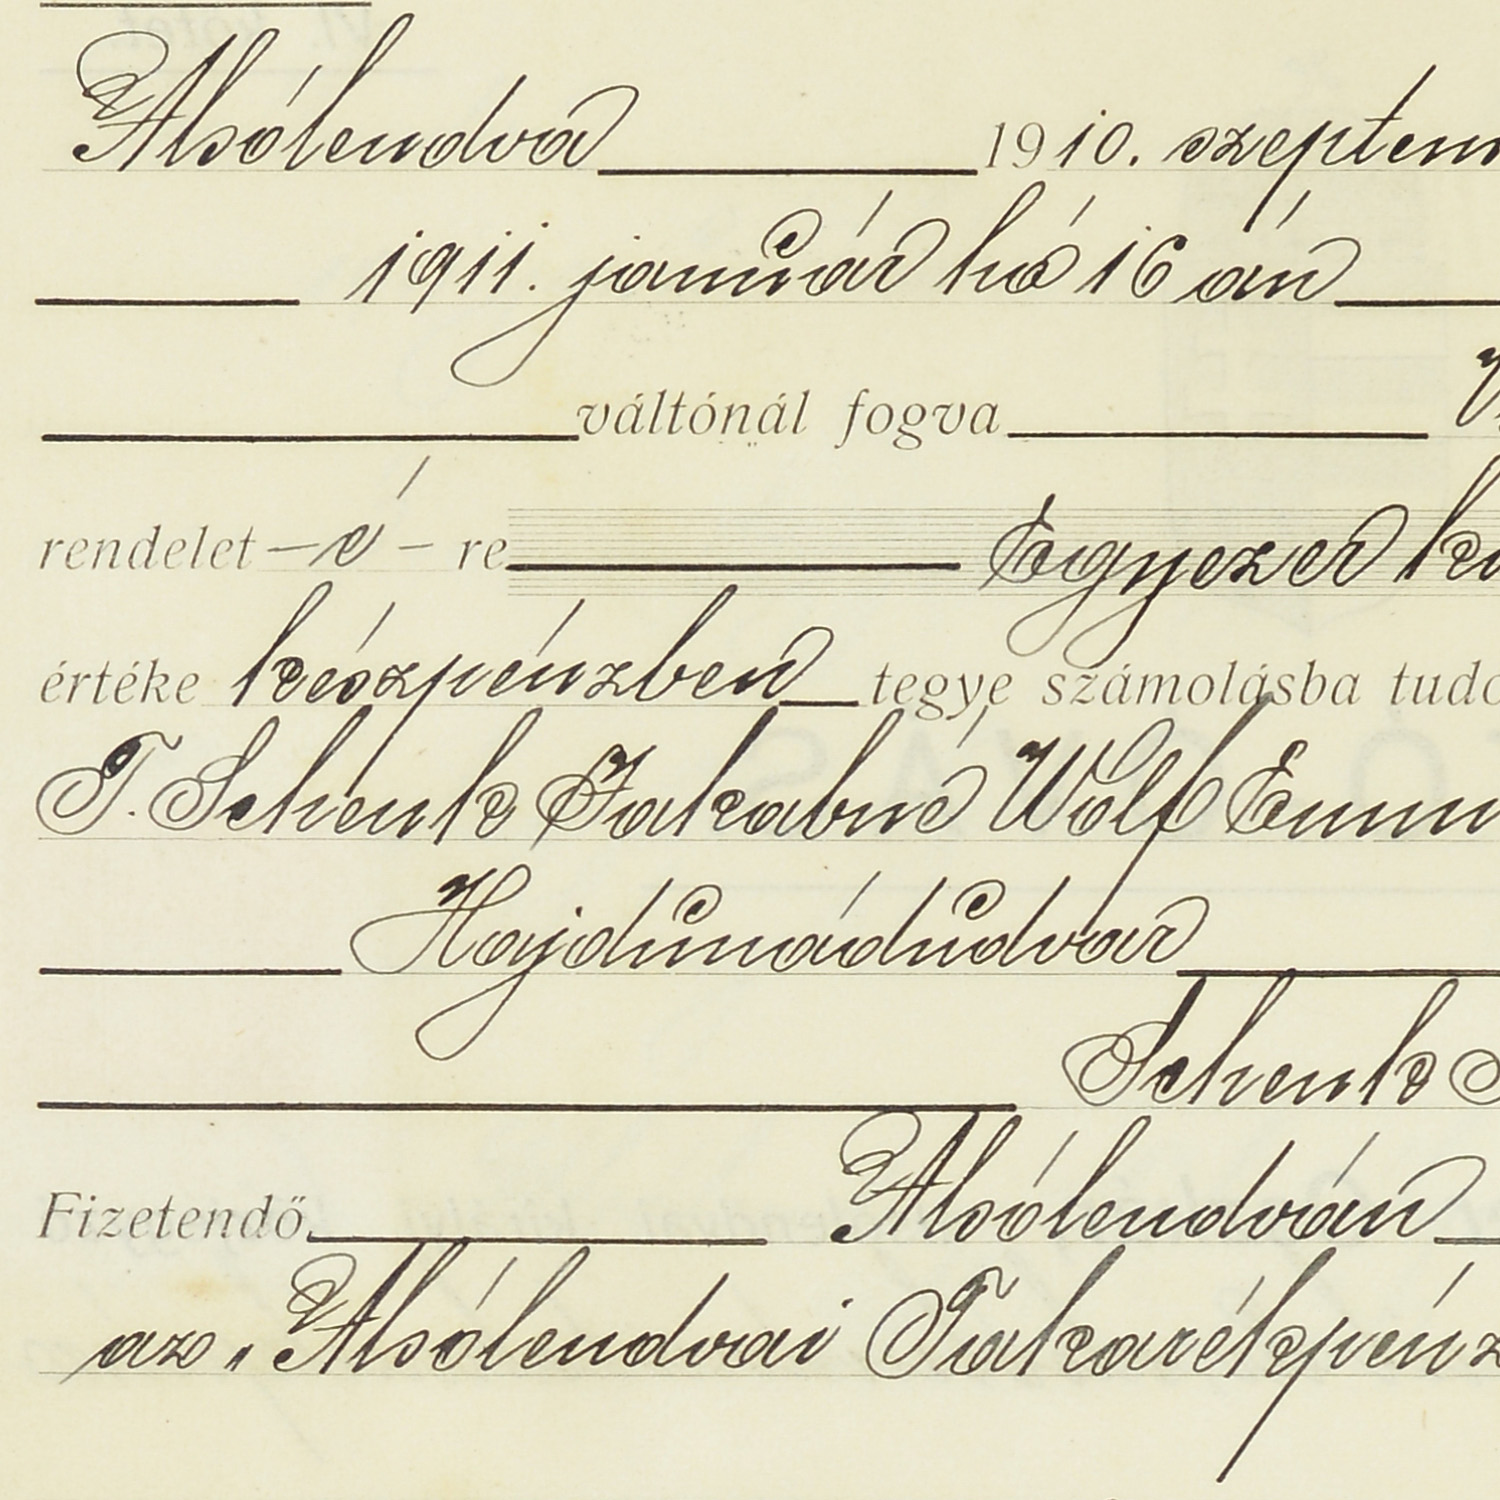 Alsólendva 1910. szeptem
1911. január hó 16 án
váltónál fogva
rendelet – é – re Egyezer ko
értéke készpénzben tegye számolásba tudó
T. Schenk Jakabné Wolf Emm
Hajdunádudvar
Schenk
Fizetendő Alsólendván
az „Alsólendvai Takarékpénz